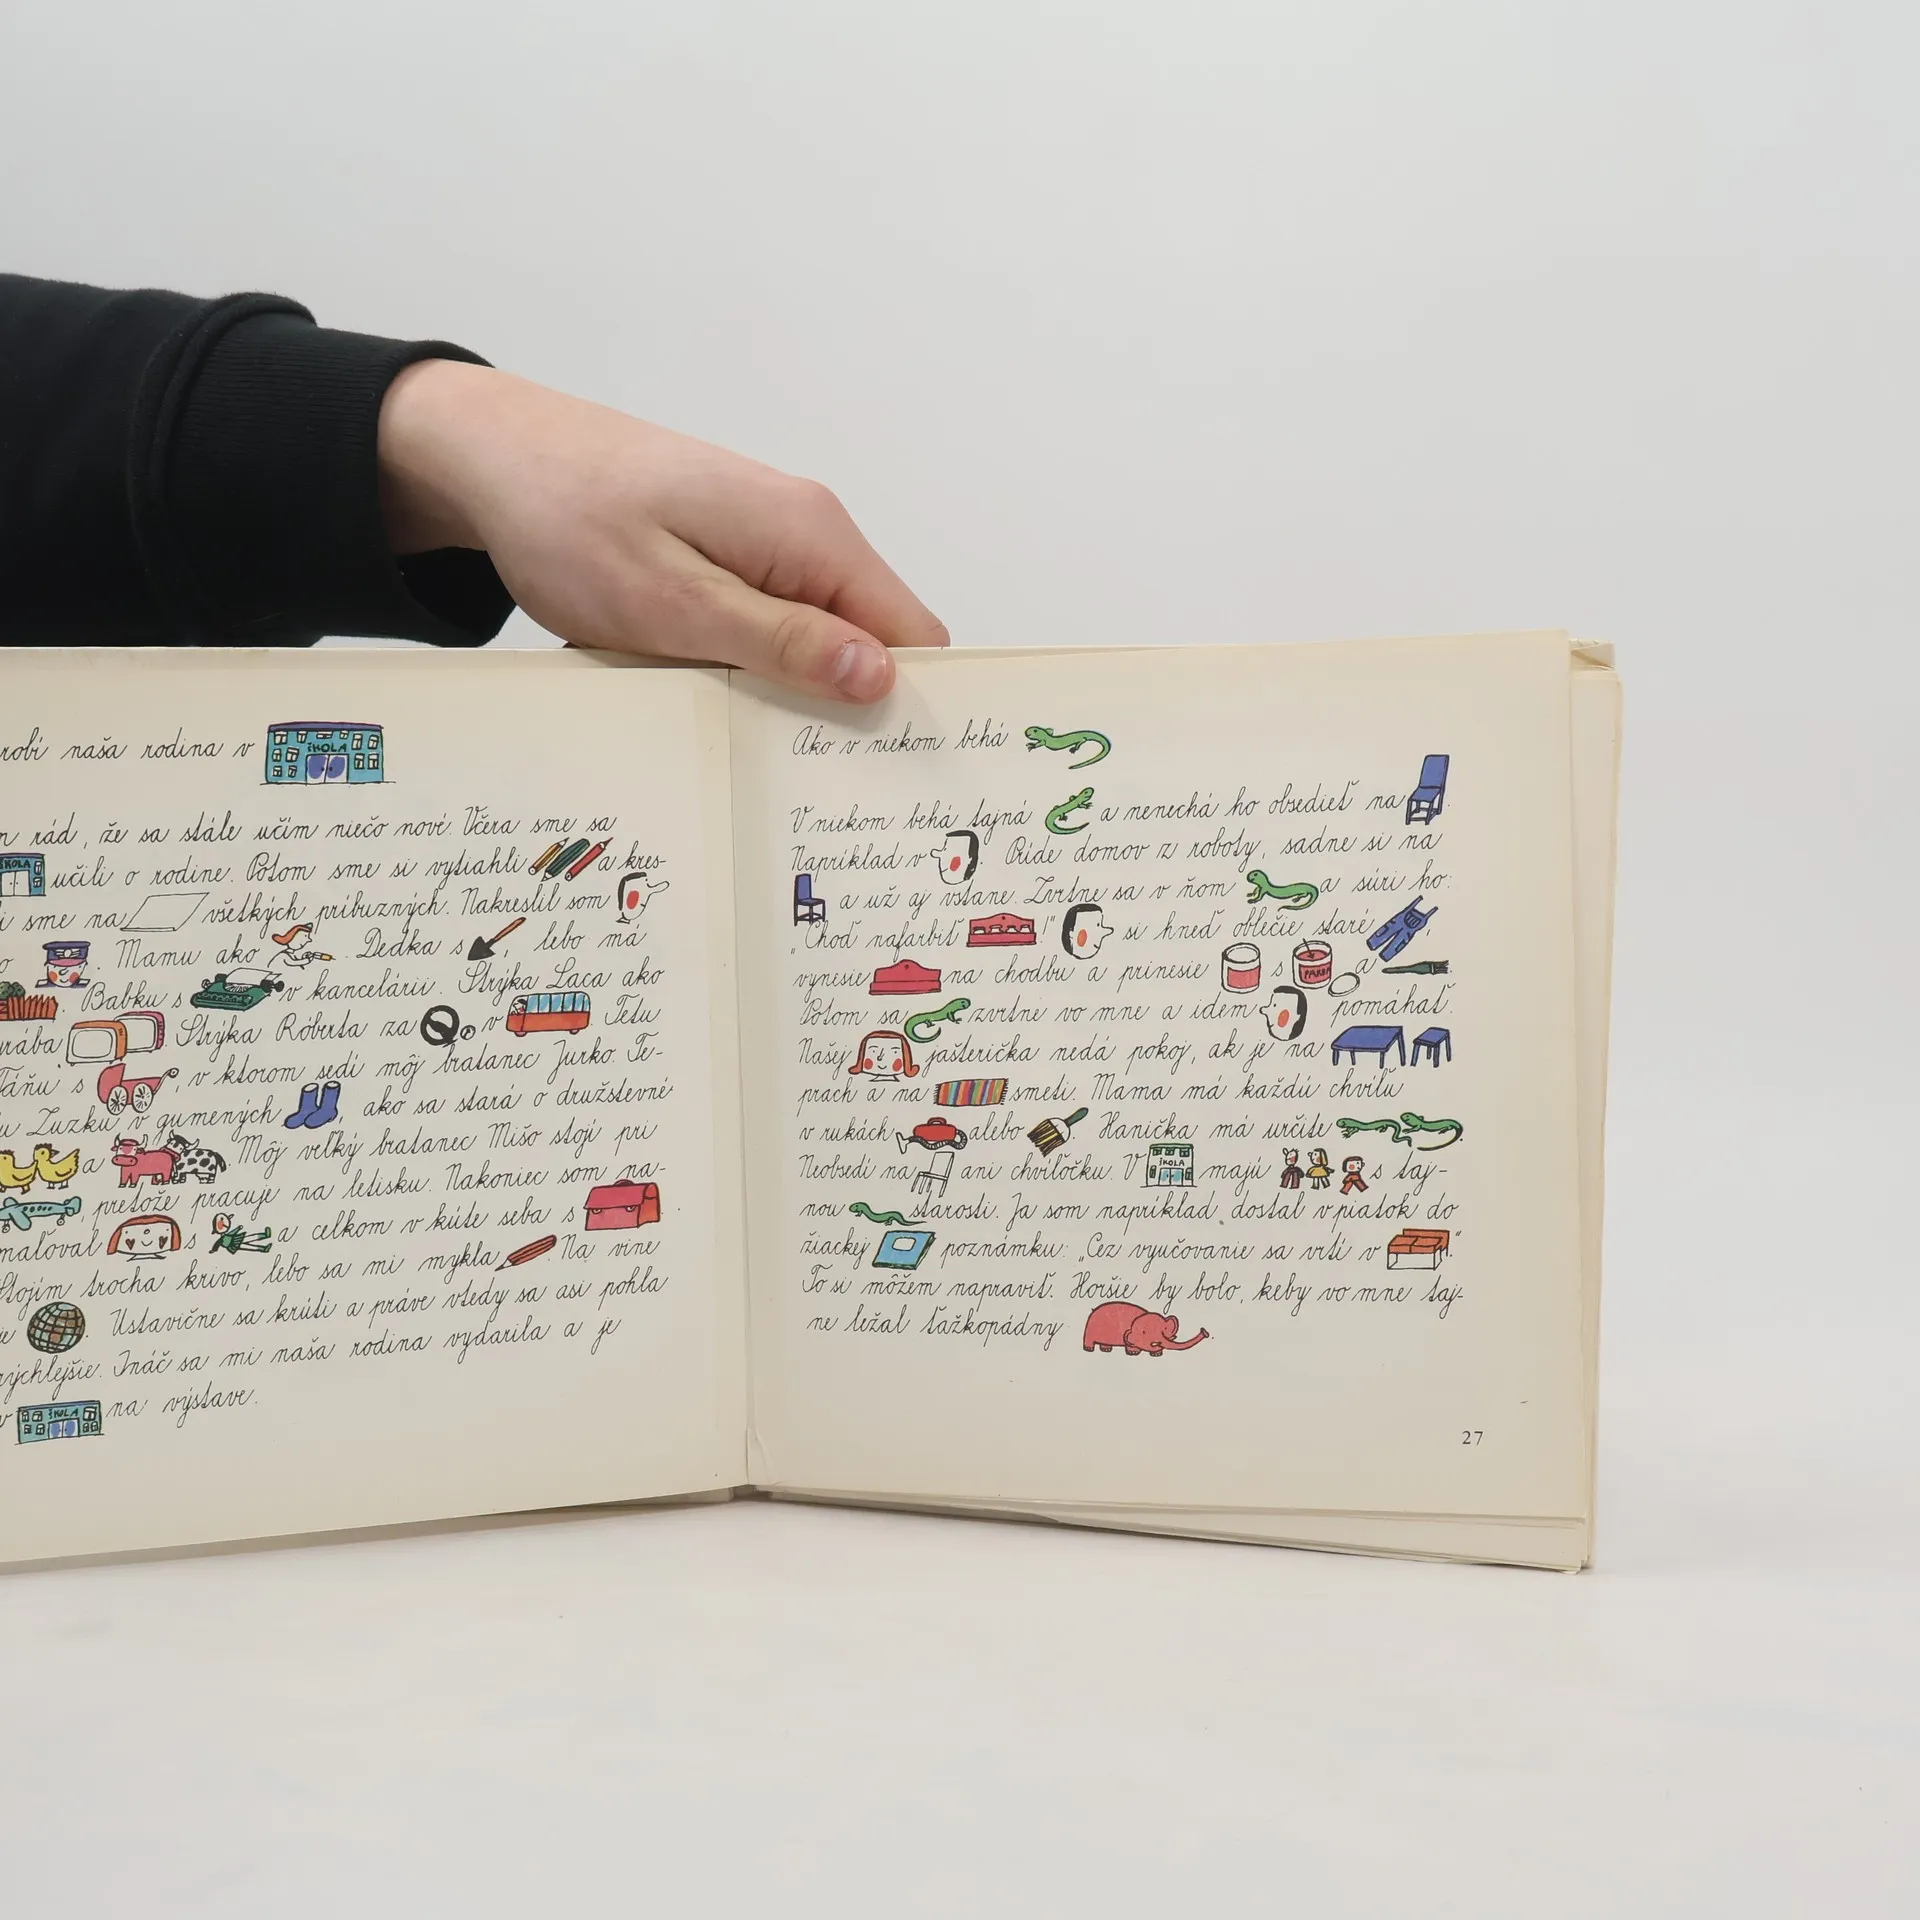 robí naša rodina v
ŠKOLA
rád, že sa stále učím niečo nové. Včera sme sa
ŠKOLA učili o rodine. Potom sme si vytiahli a kres-
sme na všetkých príbuzných. Nakreslil som
Mamu ako . Dedka s , lebo má
Babku s v kancelárii. Strýka Laca ako
Strýka Róberta za v . Tetu
Táňu s , v ktorom sedí môj bratanec Jurko. Te-
Zuzku v gumených , ako sa stará o družstevné
a . Môj veľký bratanec Mišo stojí pri
, pretože pracuje na letisku. Nakoniec som na-
maľoval s a celkom v kúte seba s .
Stojím trocha krivo, lebo sa mi mykla . Na vine
. Ustavične sa krúti a práve vtedy sa asi pohla
rýchlejšie. Ináč sa mi naša rodina vydarila a je
v ŠKOLA na výstave.
Ako v niekom behá
V niekom behá tajná a nenechá ho obsedieť na .
Napríklad v . Príde domov z roboty, sadne si na
a už aj vstane. Zvrtne sa v ňom a súri ho:
„Choď nafarbiť !“ si hneď oblečie staré ,
vynesie na chodbu a prinesie s FARBA a .
Potom sa zvrtne vo mne a idem pomáhať.
Našej jašterička nedá pokoj, ak je na
prach a na smeti. Mama má každú chvíľu
v rukách alebo . Hanička má určite .
Neobsedí na ani chvíľočku. V ŠKOLA majú s taj-
nou starosti. Ja som napríklad dostal v piatok do
žiackej poznámku: „Cez vyučovanie sa vrtí v .“
To si môžem napraviť. Horšie by bolo, keby vo mne taj-
ne ležal ťažkopádny .
27